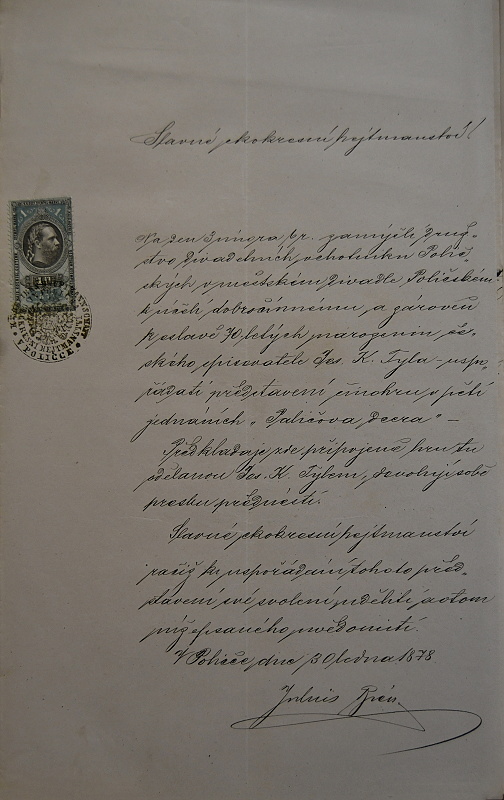 Slavné c k okresní hejtmanství!
Na den 3 února t. r. zamýšlí druž-
stvo divadelních ochotníků Polič-
ských v městském divadle Poličském
k účeli dobročinnému a zároveň
k oslavě 70 letých narozenin če-
ského spisovatele Jos. K. Tyla uspo-
řádati představení činohru o pěti
jednáních „Paličova dcera" –
Předkládaje zde připojenou hru tu
sdělanou Jos. K. Tylem, dovoluji sobě
prosbu přednésti:
Slavné c k okresní hejtmanství
račiž ku uspořádání tohoto před-
stavení své svolení uděliti a o tom
níže psaného uvědomiti.
V Poličce, dne 30 ledna 1878
Julius
1
V POLIČCE